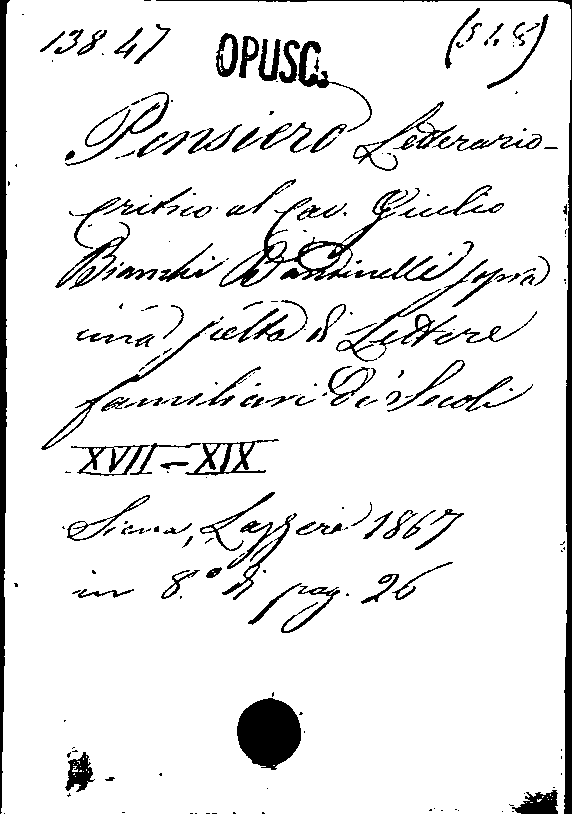 138.47 OPUSC. (548)
Pensiero Letterario-
critico al Cav. Giulio
Bianchi Bandinelli sopra
una scelta di Lettere
familiari de' Secoli
XVII - XIX
Siena, Lazzeri 1867
in 8.° di pag. 26